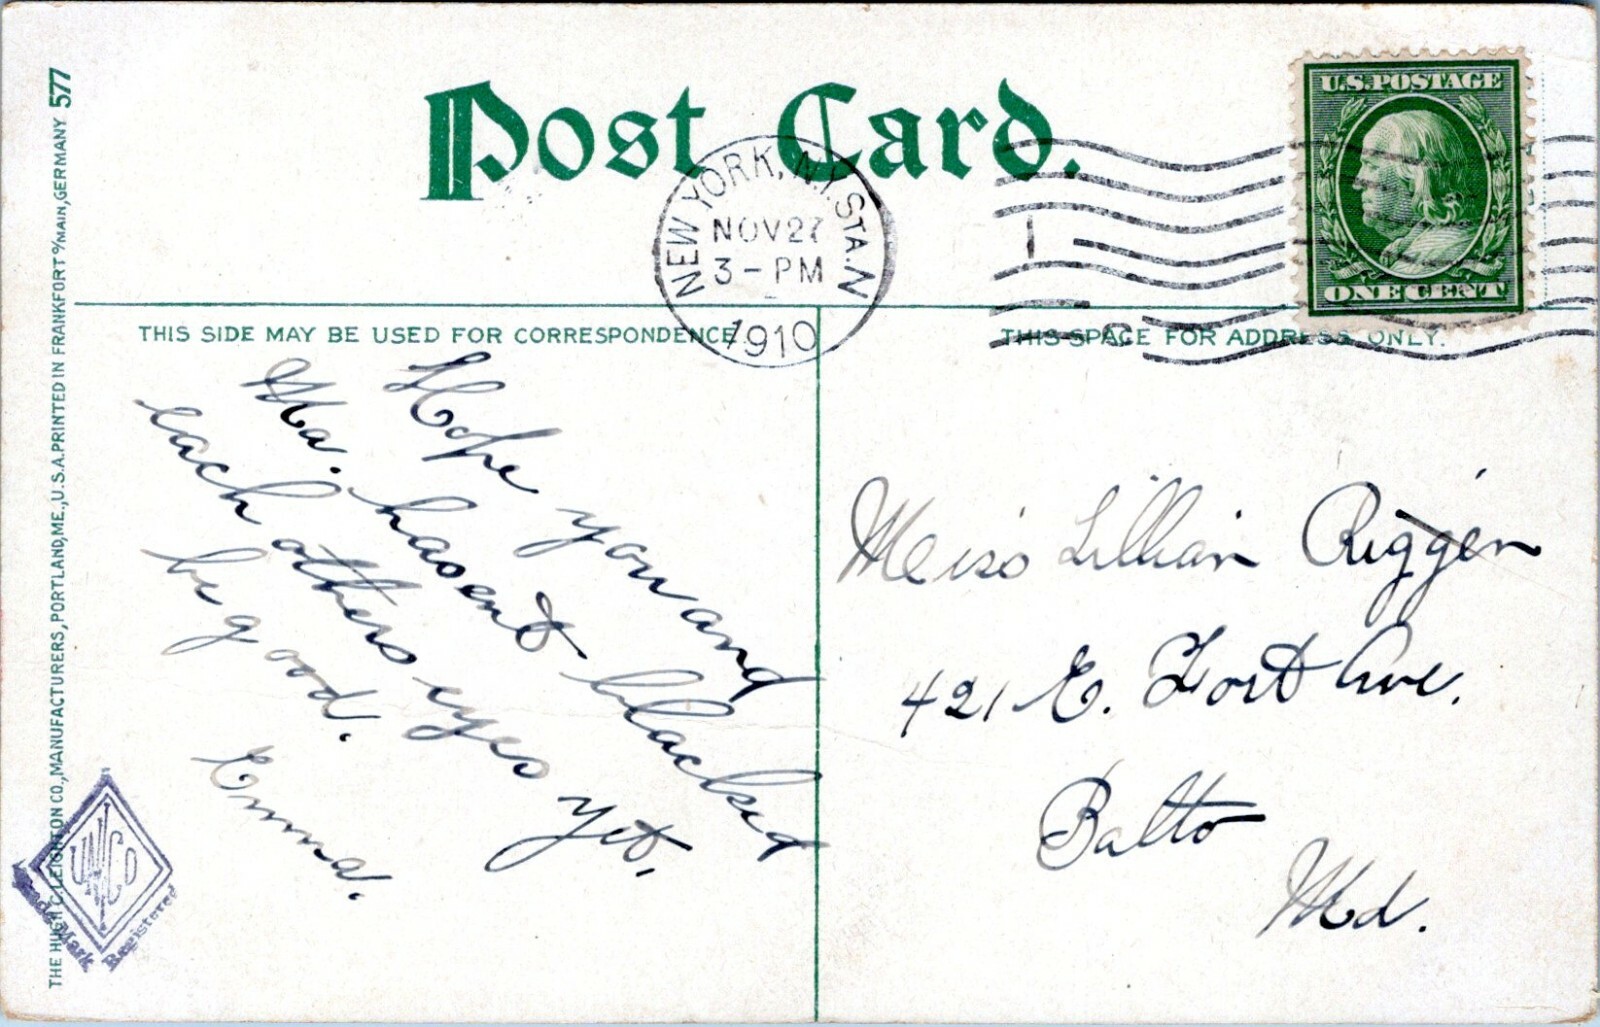 Post Card.
U.S. POSTAGE
ONE CENT
NEW YORK, N.Y. STA. N
NOV 27
3 - PM
1910
THIS SIDE MAY BE USED FOR CORRESPONDENCE
THIS SPACE FOR ADDRESS ONLY.
Hope you and
Ma. hasent blacked
each others eyes yet.
be good.
Emma.
Miss Lillian Riggen
421 E. Fort Ave.
Balto
Md.
THE HUGH C. LEIGHTON CO., MANUFACTURERS, PORTLAND, ME., U.S.A. PRINTED IN FRANKFORT O/MAIN, GERMANY 577
Trade Mark
Registered